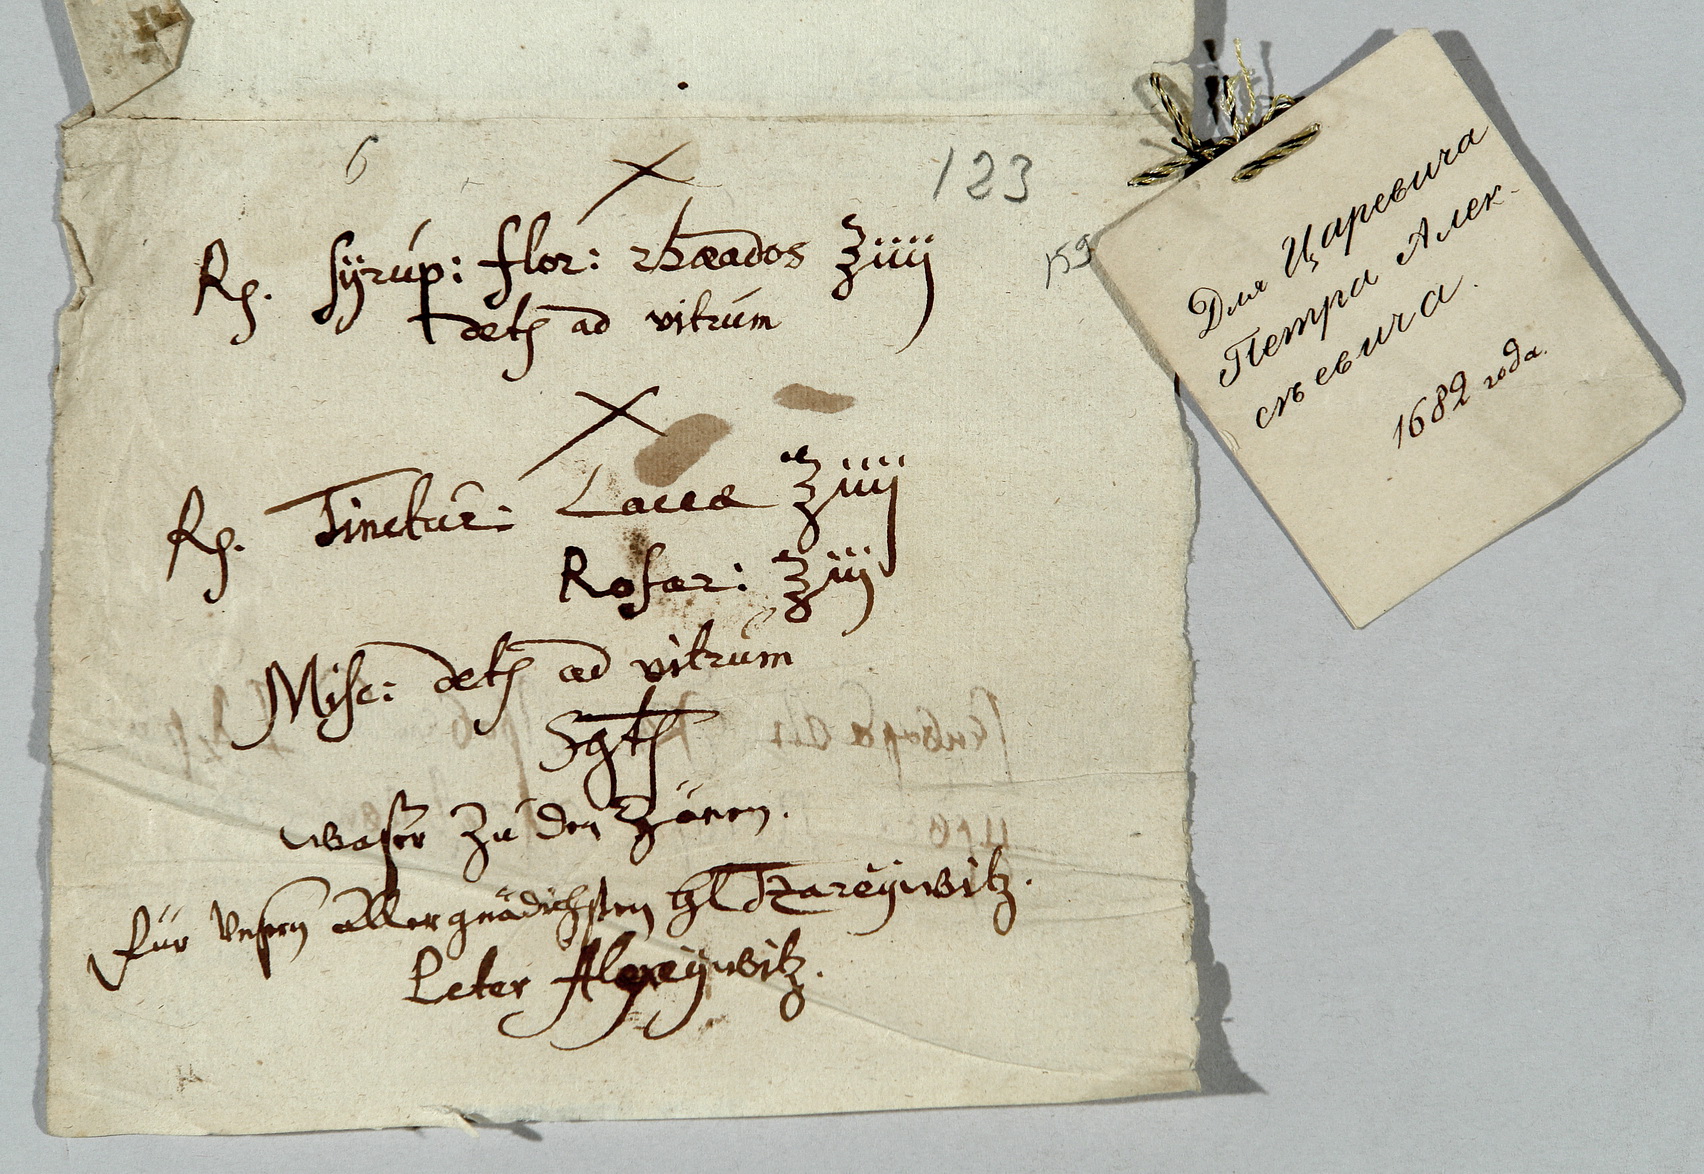 6
123
Rp. Syrup: flor: rhæados ℥iiij
detʒ ad vitrum
159
Rp. Tinctur: Laccæ ℥iiij
Rosar: ℥iij
Misc: detʒ ad vitrum
Sgtʒ
waßer zu den Zänen.
für Unsern allergnädichsten hl Tzareÿwitz.
Peter Alexeÿwitz.
Для Царевича
Петра Алек-
сѣевича.
1682 года.